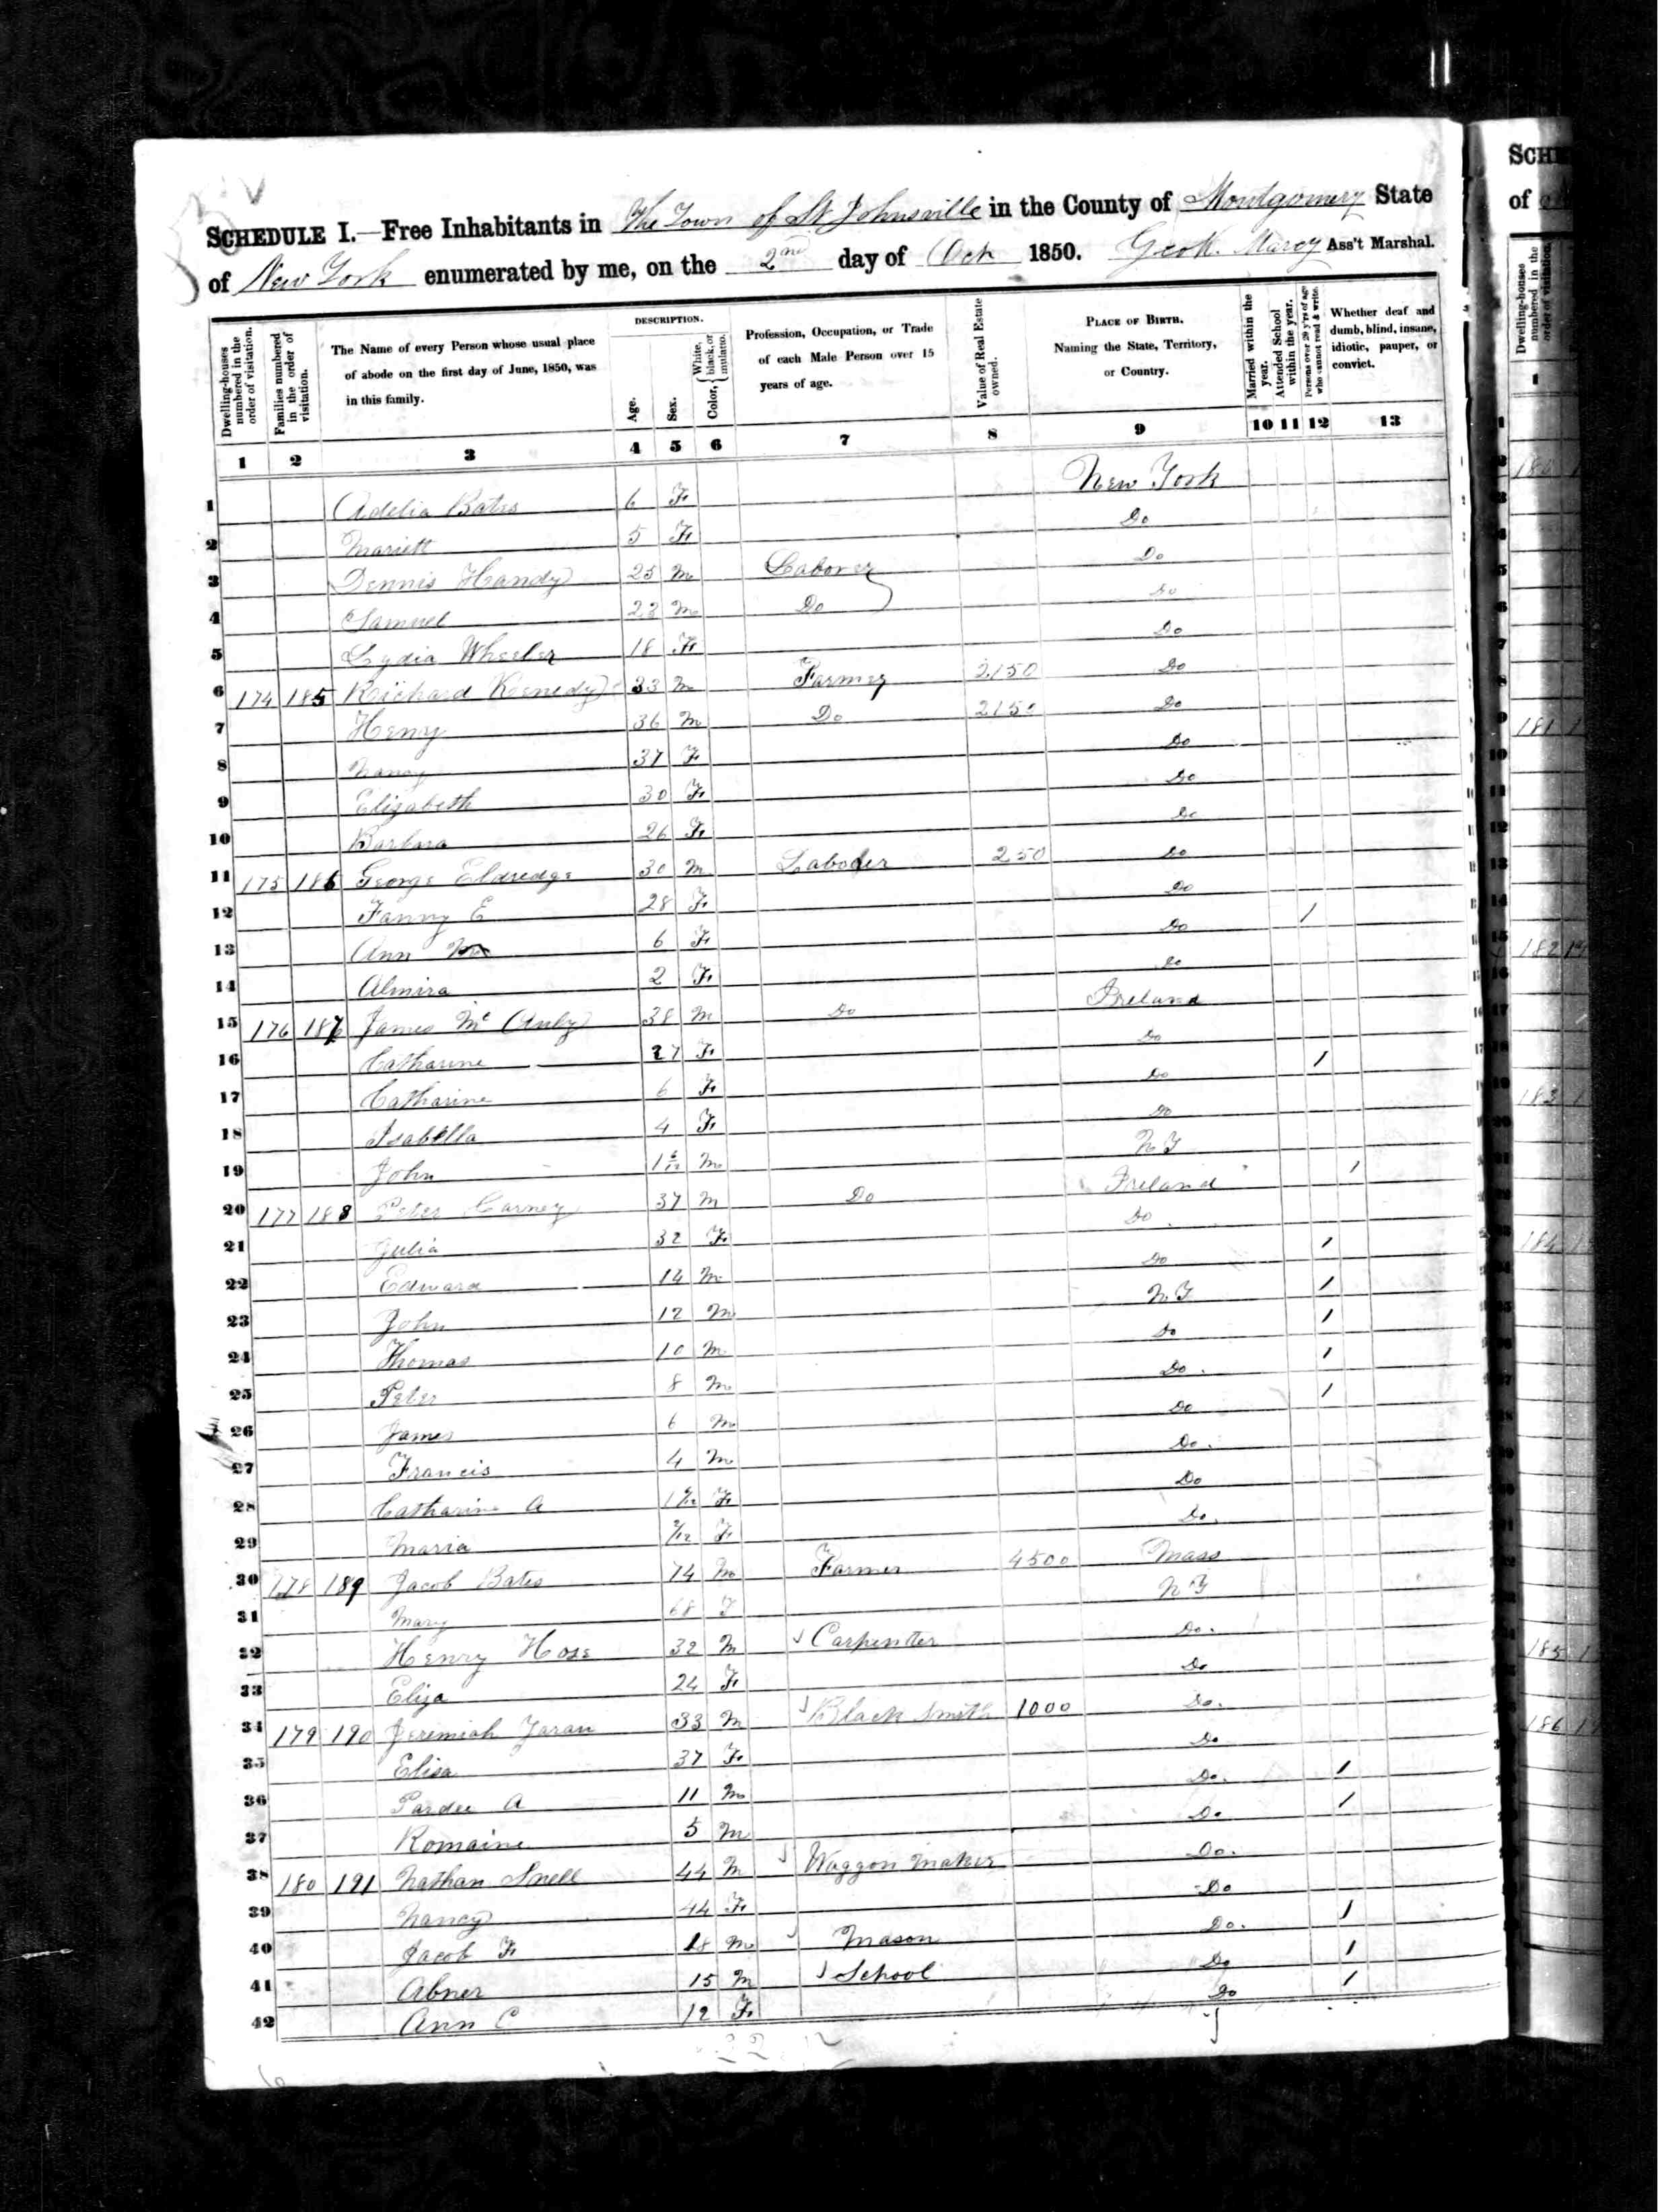 SCHEDULE I.—Free Inhabitants in The Town of St Johnsville in the County of Montgomery State
of New York enumerated by me, on the 2nd day of Oct 1850. Geo K. Marcy Ass't Marshal.
Dwelling-houses numbered in the order of visitation.
Families numbered in the order of visitation.
The Name of every Person whose usual place of abode on the first day of June, 1850, was in this family.
DESCRIPTION.
Age.
Sex.
Color, White, black, or mulatto.
Profession, Occupation, or Trade of each Male Person over 15 years of age.
Value of Real Estate owned.
PLACE OF BIRTH. Naming the State, Territory, or Country.
Married within the year.
Attended School within the year.
Persons over 20 y'rs of age who cannot read & write.
Whether deaf and dumb, blind, insane, idiotic, pauper, or convict.
1 2 3 4 5 6 7 8 9 10 11 12 13
1 Adelia Bates 6 F New York
2 Mariett 5 F Do
3 Dennis Handy 25 M Laborer Do
4 Samuel 23 M Do Do
5 Lydia Wheeler 18 F Do
6 174 185 Richard Kenedy 33 M Farmer 2150 Do
7 Henry 36 M Do 2150 Do
8 Nancy 37 F Do
9 Elizabeth 30 F Do
10 Barbara 26 F Do
11 175 186 George Eldredge 30 M Laborer 250 Do
12 Fanny E 28 F Do
13 Ann M 6 F Do /
14 Almira 2 F Do
15 176 187 James Mc 38 M Do Ireland
16 Catharine 27 F Do
17 Catharine 6 F Do /
18 Isabella 4 F Do
19 John 1 6/12 M N Y
20 177 188 Peter Carney 37 M Do Ireland /
21 Julia 32 F Do
22 Edward 14 M Do /
23 John 12 M N Y /
24 Thomas 10 M Do /
25 Peter 8 M Do /
26 James 6 M Do /
27 Francis 4 M Do
28 Catharine A F Do
29 Maria F Do
30 178 189 Jacob Bates 74 M Farmer 4500 Mass
31 Mary 68 F N Y
32 Henry Hose 32 M Carpenter Do
33 Eliza 24 F Do
34 179 190 Jeremiah Yaran 33 M Black Smith 1000 Do
35 Elisa 37 F Do
36 Pardee A 11 M Do /
37 Romaine 5 M Do /
38 180 191 Nathan Snell 44 M Waggon Maker Do
39 Nancy 44 F Do
40 Jacob F 18 M Mason Do /
41 Abner 15 M School Do /
42 Ann C 12 F Do /
SCHE
of
Dwelling-houses numbered in the order of visitation.
1
181
182
183
184
185
186